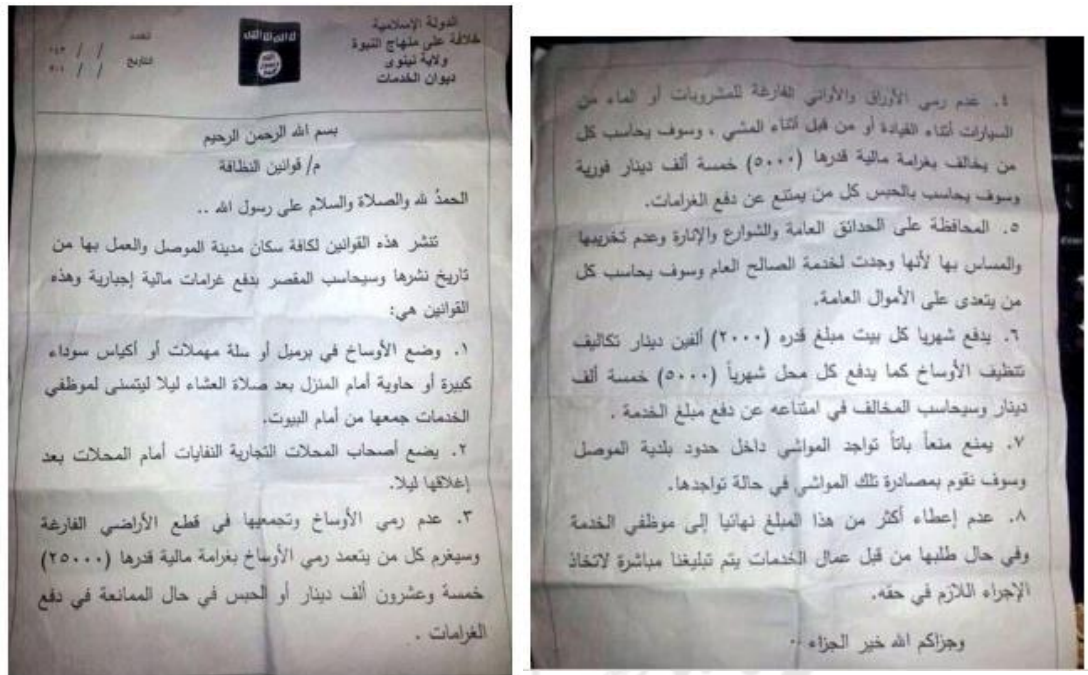 الدولة الإسلامية
خلافة على منهاج النبوة
ولاية نينوى
ديوان الخدمات
العدد / /
التاريخ / /
بسم الله الرحمن الرحيم
م/ قوانين النظافة
الحمدُ لله والصلاة والسلام على رسول الله ..
تنشر هذه القوانين لكافة سكان مدينة الموصل والعمل بها من
تاريخ نشرها وسيحاسب المقصر بدفع غرامات مالية إجبارية وهذه
القوانين هي:
١. وضع الأوساخ في برميل أو سلة مهملات أو أكياس سوداء
كبيرة أو حاوية أمام المنزل بعد صلاة العشاء ليلا ليتسنى لموظفي
الخدمات جمعها من أمام البيوت.
٢. يضع أصحاب المحلات التجارية النفايات أمام المحلات بعد
إغلاقها ليلا.
٣. عدم رمي الأوساخ وتجمعيها في قطع الأراضي الفارغة
وسيغرم كل من يتعمد رمي الأوساخ بغرامة مالية قدرها (٢٥٠٠٠)
خمسة وعشرون ألف دينار أو الحبس في حال الممانعة في دفع
الغرامات .
٤. عدم رمي الأوراق والأواني الفارغة للمشروبات أو الماء من
السيارات أثناء القيادة أو من قبل أثناء المشي ، وسوف يحاسب كل
من يخالف بغرامة مالية قدرها (٥٠٠٠) خمسة ألف دينار فورية
وسوف يحاسب بالحبس كل من يمتنع عن دفع الغرامات.
٥. المحافظة على الحدائق العامة والشوارع والإنارة وعدم تخريبها
والمساس بها لأنها وجدت لخدمة الصالح العام وسوف يحاسب كل
من يتعدى على الأموال العامة.
٦. يدفع شهريا كل بيت مبلغ قدره (٢٠٠٠) ألفين دينار تكاليف
تنظيف الأوساخ كما يدفع كل محل شهرياً (٥٠٠٠) خمسة ألف
دينار وسيحاسب المخالف في امتناعه عن دفع مبلغ الخدمة .
٧. يمنع منعاً باتاً تواجد المواشي داخل حدود بلدية الموصل
وسوف نقوم بمصادرة تلك المواشي في حالة تواجدها.
٨. عدم إعطاء أكثر من هذا المبلغ نهائيا إلى موظفي الخدمة
وفي حال طلبها من قبل عمال الخدمات يتم تبليغنا مباشرة لاتخاذ
الإجراء اللازم في حقه.
وجزاكم الله خير الجزاء ..